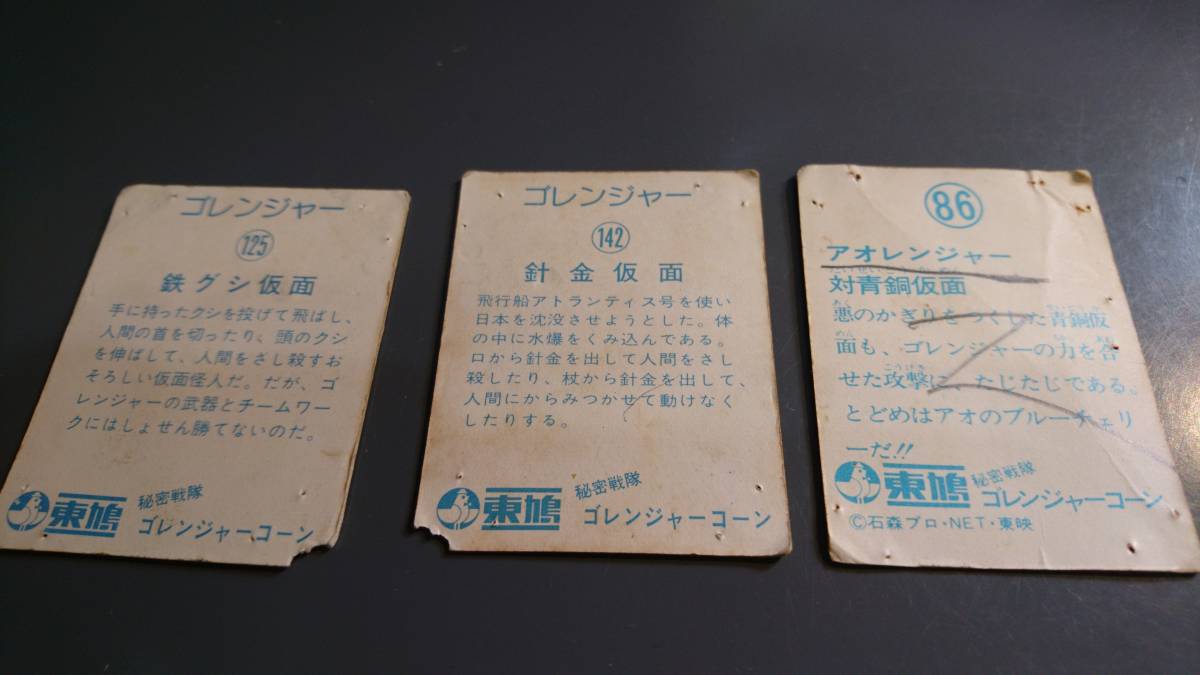 ゴレンジャー
125
鉄グシ仮面
手に持ったクシを投げて飛ばし、
人間の首を切ったり、頭のクシ
を伸ばして、人間をさし殺すお
そろしい仮面怪人だ。だが、ゴ
レンジャーの武器とチームワー
クにはしょせん勝てないのだ。
東鳩
秘密戦隊
ゴレンジャーコーン
ゴレンジャー
142
針金仮面
飛行船アトランティス号を使い
日本を沈没させようとした。体
の中に水爆をくみ込んである。
口から針金を出して人間をさし
殺したり、杖から針金を出して、
人間にからみつかせて動けなく
したりする。
東鳩
秘密戦隊
ゴレンジャーコーン
86
アオレンジャー
対青銅仮面
あく
悪のかぎりをつくした青銅仮
めん
面も、ゴレンジャーの力を合
こうげき
せた攻撃に、たじたじである。
とどめはアオのブルーチェリ
ーだ!!
東鳩
秘密戦隊
ゴレンジャーコーン
©石森プロ・NET・東映